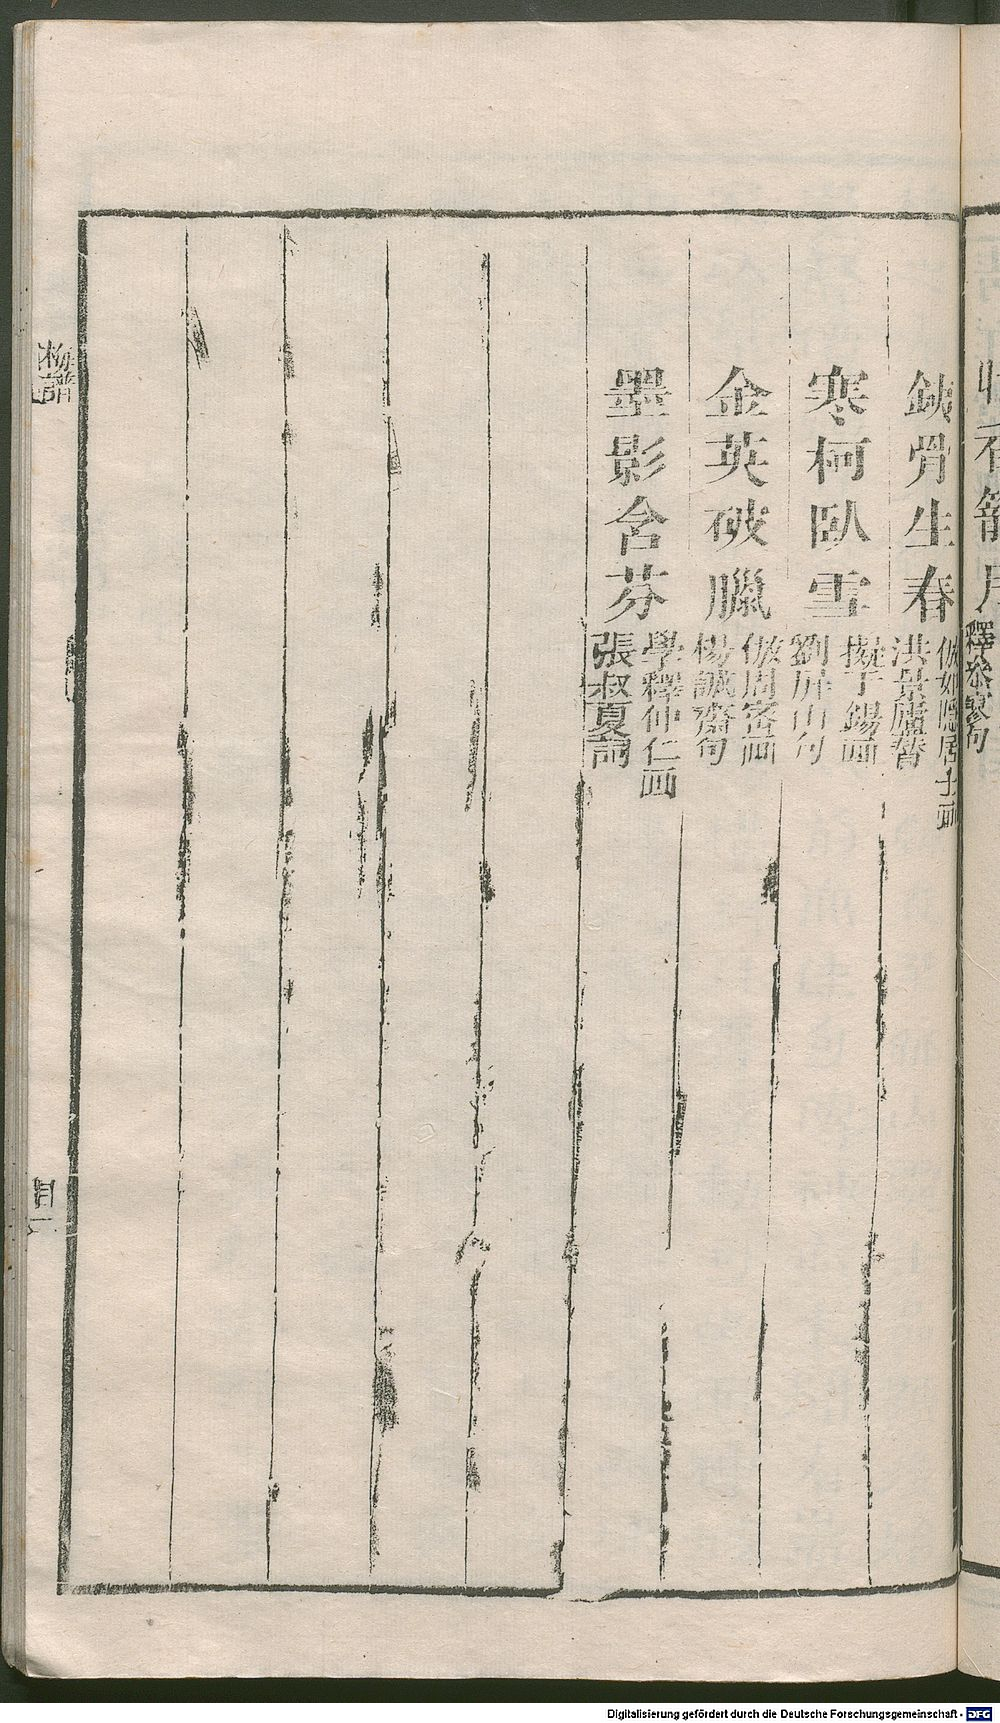 釋參寥句
鐵骨生春
倣如隱居士画
洪景廬贊
寒柯臥雪
擬于錫画
劉屏山句
金英破臘
倣周密画
楊誠齋句
墨影含芬
學釋仲仁画
張叔夏詞
梅譜
目
Digitalisierung gefördert durch die Deutsche Forschungsgemeinschaft - DFG